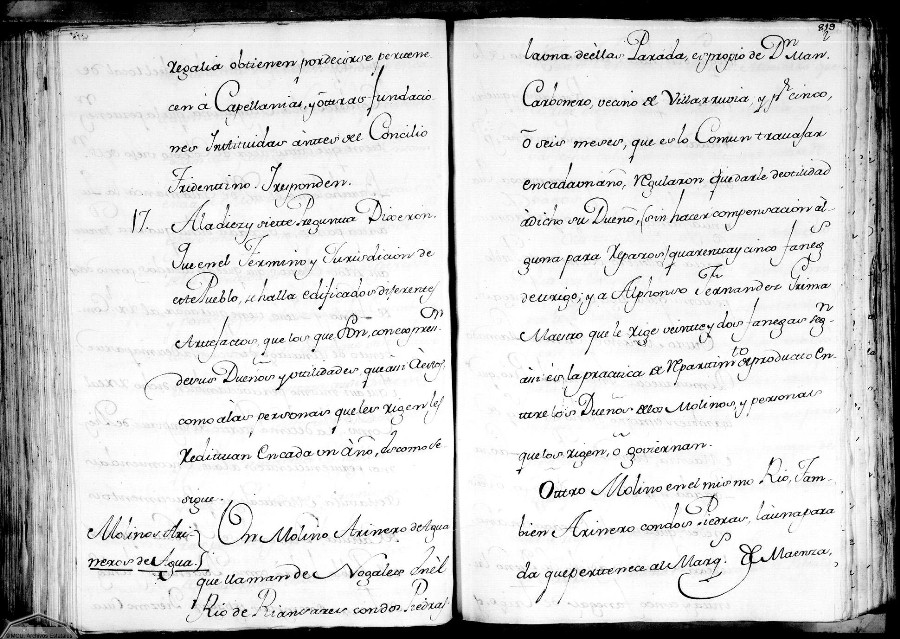 regalia obtienen por decirse pertene-
cen á Capellanias, y ôttras fundacio-
nes Instituidas ânttes del Concilio
Tridentino. Y responden.
17. A la diez y siette Pregunta Dixeron.
Que en el Termino y Jurisdicion de
este Pueblo, se halla edificados diferentes
Artefactos, que los que son, con expresn.
de sus Dueños y utilidades, que âsi â estos,
como â las personas que les rigen les
redituan en cada un âño, es como se
sigue.
Molinos Ari-
neros de Agua.
Un Molino Arinero de Agua
que llaman de Nogales en êl
Rio de Riansares con dos Piedras
819
la una de êllas Parada, es propio de Dn Man.
Carbonero, vecino de Villarrubia, y pr cinco,
ô seis meses, que es lo Comun travajar
en cada un âño, regularon quedarle de utilidad
a dicho su Dueño, (sin hacer compensacion âl-
guna para reparos) quarenta y cinco fanegs
de trigo; y a Alphonso Fernandez Prima
Maestro que le rige veinte y dos fanegas segn
âsi es la practica de repartimto de producto en-
ttre los Dueños de los Molinos y personas
que los rigen, ô goviernan.
Ottro Molino en el mismo Rio, Tam-
bien Arinero con dos Piedras, la una para
da que pertenece al Marqs. de Maenza,
© MCU. Archivos Estatales